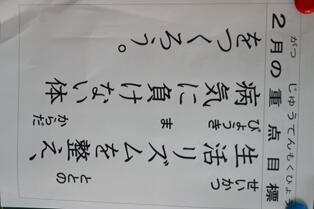 がつ じゅうてんもくひょう
２月の重点目標
せいかつ ととの
生活リズムを整え、
びょうき ま からだ
病気に負けない体
をつくろう。